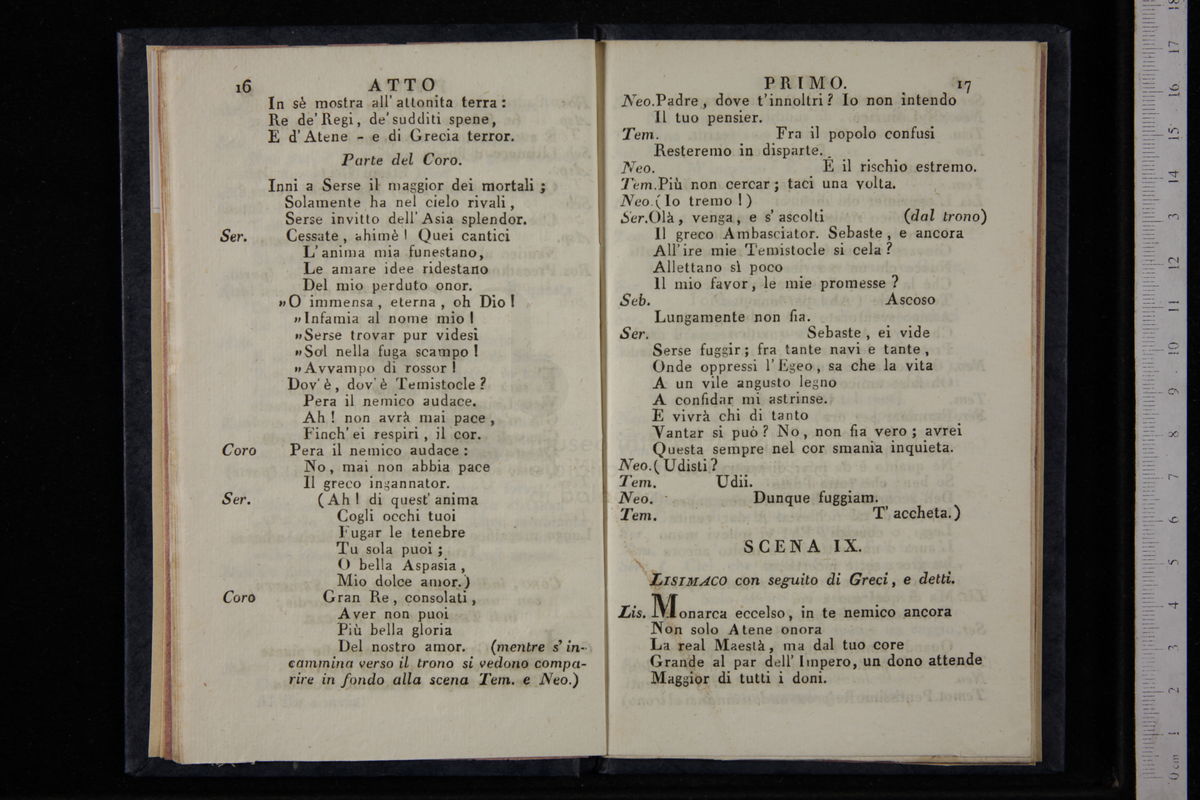 16 ATTO
In sè mostra all' attonita terra :
Re de' Regi, de' sudditi spene,
E d' Atene - e di Grecia terror.
Parte del Coro.
Inni a Serse il maggior dei mortali ;
Solamente ha nel cielo rivali,
Serse invitto dell' Asia splendor.
Ser. Cessate, ahimè ! Quei cantici
L' anima mia funestano,
Le amare idee ridestano
Del mio perduto onor.
»O immensa, eterna, oh Dio !
»Infamia al nome mio !
»Serse trovar pur videsi
»Sol nella fuga scampo !
»Avvampo di rossor !
Dov' è, dov' è Temistocle ?
Pera il nemico audace.
Ah ! non avrà mai pace,
Finch' ei respiri, il cor.
Coro Pera il nemico audace :
No, mai non abbia pace
Il greco ingannator.
Ser. (Ah ! di quest' anima
Cogli occhi tuoi
Fugar le tenebre
Tu sola puoi ;
O bella Aspasia,
Mio dolce amor.)
Coro Gran Re, consolati,
Aver non puoi
Più bella gloria
Del nostro amor. (mentre s' in-
cammina verso il trono si vedono compa-
rire in fondo alla scena Tem. e Neo.)
PRIMO. 17
Neo. Padre, dove t' innoltri ? Io non intendo
Il tuo pensier.
Tem. Fra il popolo confusi
Resteremo in disparte.
Neo. È il rischio estremo.
Tem. Più non cercar ; taci una volta.
Neo. (Io tremo !)
Ser. Olà, venga, e s' ascolti (dal trono)
Il greco Ambasciator. Sebaste, e ancora
All' ire mie Temistocle si cela ?
Allettano sì poco
Il mio favor, le mie promesse ?
Seb. Ascoso
Lungamente non fia.
Ser. Sebaste, ei vide
Serse fuggir ; fra tante navi e tante,
Onde oppressi l' Egeo, sa che la vita
A un vile angusto legno
A confidar mi astrinse.
E vivrà chi di tanto
Vantar si può ? No, non fia vero ; avrei
Questa sempre nel cor smania inquieta.
Neo. (Udisti ?
Tem. Udii.
Neo. Dunque fuggiam.
Tem. T' accheta.)
SCENA IX.
LISIMACO con seguito di Greci, e detti.
Lis. Monarca eccelso, in te nemico ancora
Non solo Atene onora
La real Maestà, ma dal tuo core
Grande al par dell' Impero, un dono attende
Maggior di tutti i doni.
0 cm 1 2 3 4 5 6 7 8 9 10 11 12 13 14 15 16 17 18